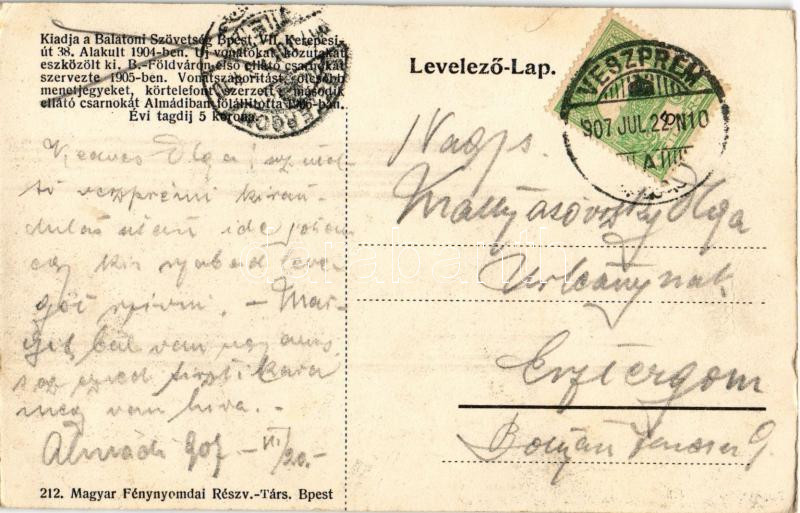 Kiadja a Balatoni Szövetség Bpest, VII. Kerepesi-
út 38. Alakult 1904-ben. Új vonatokat, közutakat
eszközölt ki. B.-Földváron első ellátó csarnokát
szervezte 1905-ben. Vonatszaporítást, olcsóbb
menetjegyeket, körtelefont szerzett, második
ellátó csarnokát Almádiban fölállította 1906-ban.
Évi tagdíj 5 korona.
Levelező-Lap.
VESZPRÉM
907 JUL. 22 N10
Kedves Olga!
tó veszprémi kirán-
dulás után ide jöttem
egy kis szabad leve-
gőt szívni. – Mar-
git bál van
meg van híva. –
Almádi 907 – VII/20. –
Nagys.
Olga
Úrleánynak
Esztergom
212. Magyar Fénynyomdai Részv.-Társ. Bpest